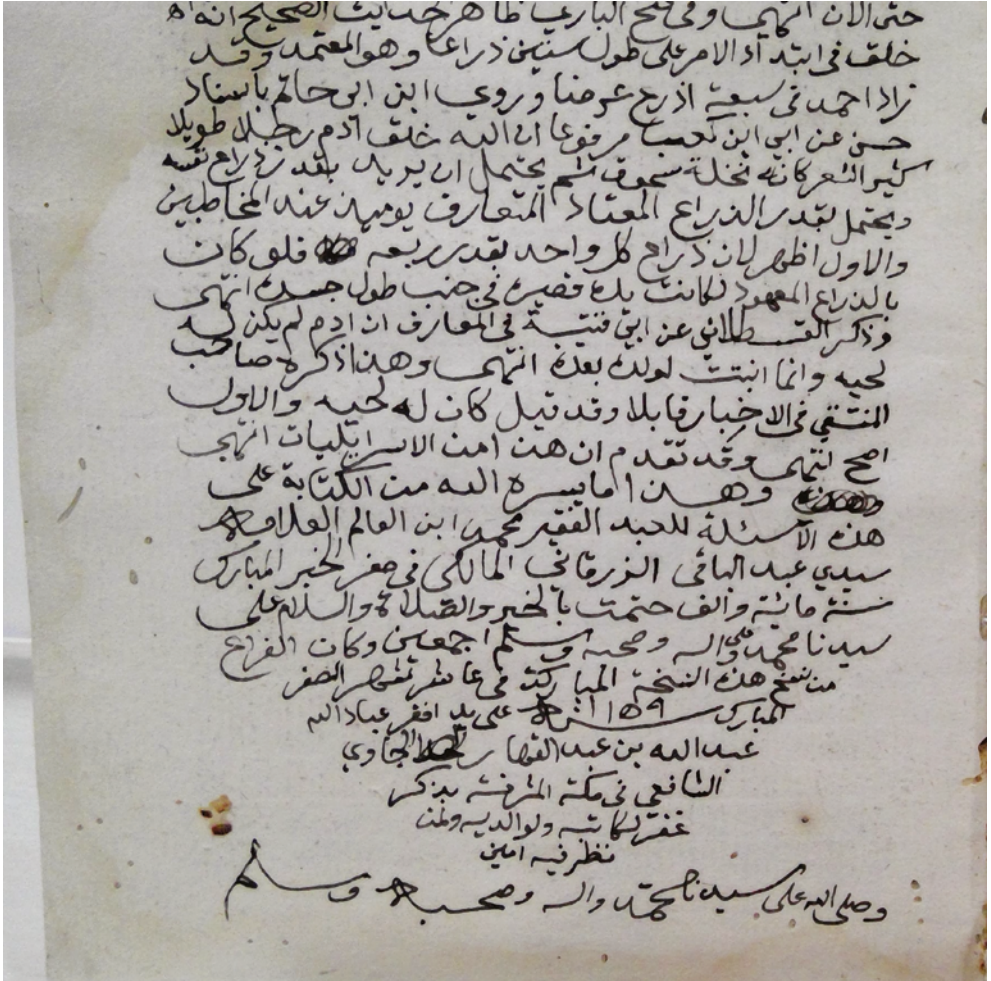 حتى الان انتهى وفي فتح الباري ظاهر حديث الصحيح انه اه
خلق في ابتداء الامر على طول ستين ذراعا وهو المعتمد وقد
زاد احمد في سبعة اذرع عرضا وروي ابن ابي حاتم باسناد
حسن عن ابي ابن كعب مرفوعا ان الله خلق ادم رجلا طويلا
كثير الشعر كانه نخلة سحوق ثم يحتمل ان يريد بقدر ذراع نفسه
ويحتمل بقدر الذراع المعتاد المتعارف يوميذ عند المخاطبين
والاول اظهر لان ذراع كل واحد بقدر ربعه فلو كان
بالذراع المعهود لكانت يده قصيرة في جنب طول جسده انتهى
وذكر القسطلاني عن ابن قتيبة في المعارف ان ادم لم يكن له
لحيه وانما انبتت لولده بعده انتهى وهذا ذكره صاحب
المنتقي في الاخبار قايلا وقد قيل كان له لحيه والاول
اصح انتهى وقد تقدم ان هذا من الاسرايليات انتهى
وهذا ما يسره الله من الكتابة على
هذه الاسئلة للعبد الفقير محمد ابن العالم العلامة
سيدي عبد الباقي الزرقاني المالكي في صفر الخير المبارك
سنة مائية والف ختمت بالخير والصلاة والسلام على
سيدنا محمد وعلى اله وصحبه وسلم اجمعين وكان الفراغ
من نسخ هذه النسخة المباركة في عاشر شهر الصفر
المبارك سنة ١١٥٩ على يد افقر عباد الله
عبد الله بن عبد القهار الجاوي
الشافعي في مكة المشرفة بذكر
غفر لكاتبه ولوالديه ولمن
نظر فيه امين
وصلى الله على سيدنا محمد واله وصحبه وسلم